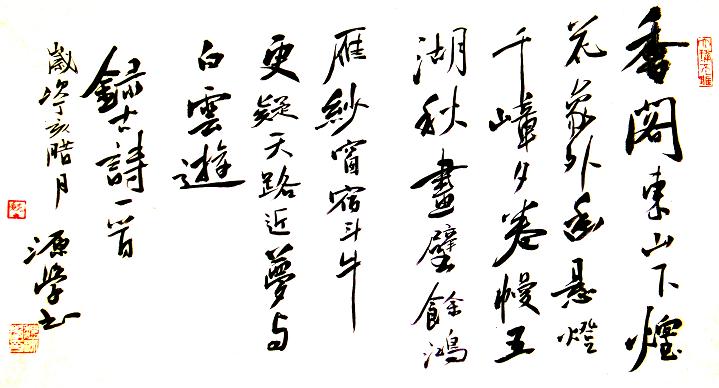 香閣東山下煙
花象外幽悬燈
千嶂夕卷幔五
湖秋畫壁餘鴻
雁紗窗宿斗牛
更疑天路近夢与
白雲遊
録古詩一首
歲次丁亥腊月
源学书